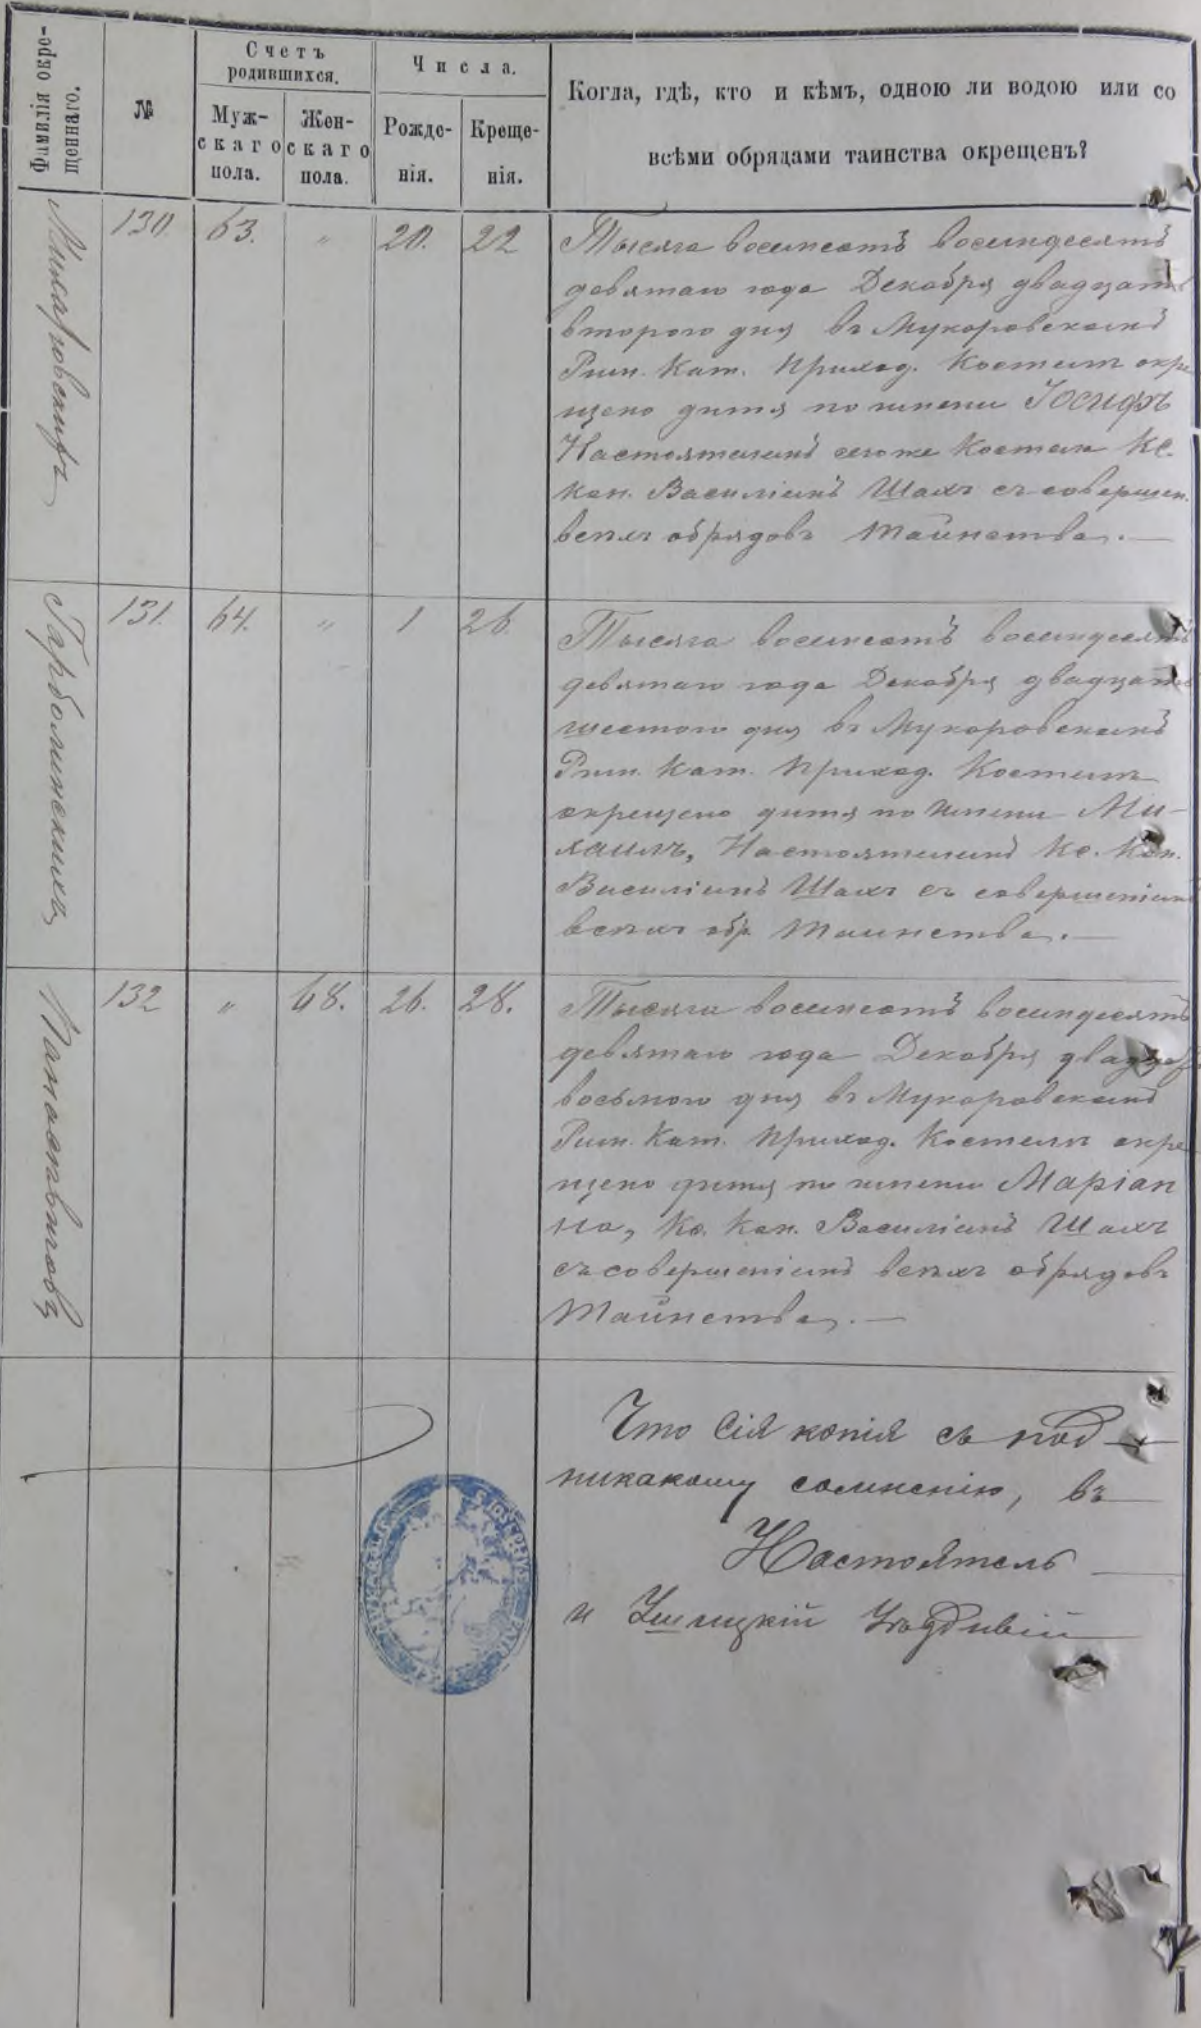 Фамилія окре-
щеннаго.
№
Счетъ
родившихся.
Муж-
скаго
пола.
Жен-
скаго
пола.
Числа.
Рожде-
нія.
Креще-
нія.
Когда, гдѣ, кто и кѣмъ, одною ли водою или со
всѣми обрядами таинства окрещенъ?
130. 63. " 20. 22
Тысяча восемсотъ восемдесятъ
девятаго года Декабря двадцать
второго дня въ Мукаровскомъ
Рим. Кат. Приход. Костелѣ окре
щено дитя по имени Іосифъ
Настоятелемъ сегоже Костела Кс.
Кан. Василіемъ Шахъ съ совершен.
всѣхъ обрядовъ Таинства.—
Гарболинскихъ
131. 64. " 1 26.
Тысяча восемсотъ восемдесятъ
девятаго года Декабря двадцать
шестого дня въ Мукаровскомъ
Рим. Кат. Приход. Костелѣ
окрещено дитя по имени Ми-
хаилъ, Настоятелемъ Кс. Кан.
Василіемъ Шахъ съ совершеніемъ
всѣхъ обр. Таинства.—
132 " 68. 26. 28.
Тысяча восемсотъ восемдесятъ
девятаго года Декабря двадцать
восьмого дня въ Мукаровскомъ
Рим. Кат. Приход. Костелѣ окре
щено дитя по имени Маріан
на, Кс. Кан. Василіемъ Шахъ
съ совершеніемъ всѣхъ обрядовъ
Таинства.—
Что сія копія съ под
никакому сомнѣнію, въ
Настоятель
и Ушицкій